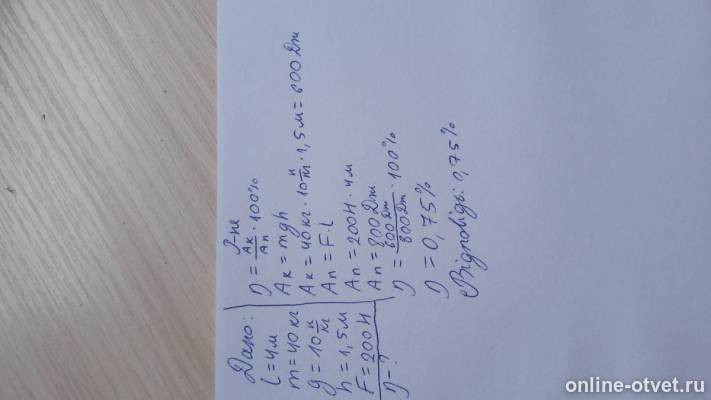 Дано:
l = 4м
m = 40 кг
g = 10 н/кг
h = 1,5 м
F = 200 Н
η - ?
Р-не
η = Aк/Aп · 100%
Aк = mgh
Aк = 40 кг · 10 н/кг · 1,5 м = 600 Дж
Aп = F·l
Aп = 200Н · 4м
Aп = 800 Дж
η = 600 Дж/800 Дж · 100%
η = 0,75%
Відповідь: 0,75%
online-otvet.ru